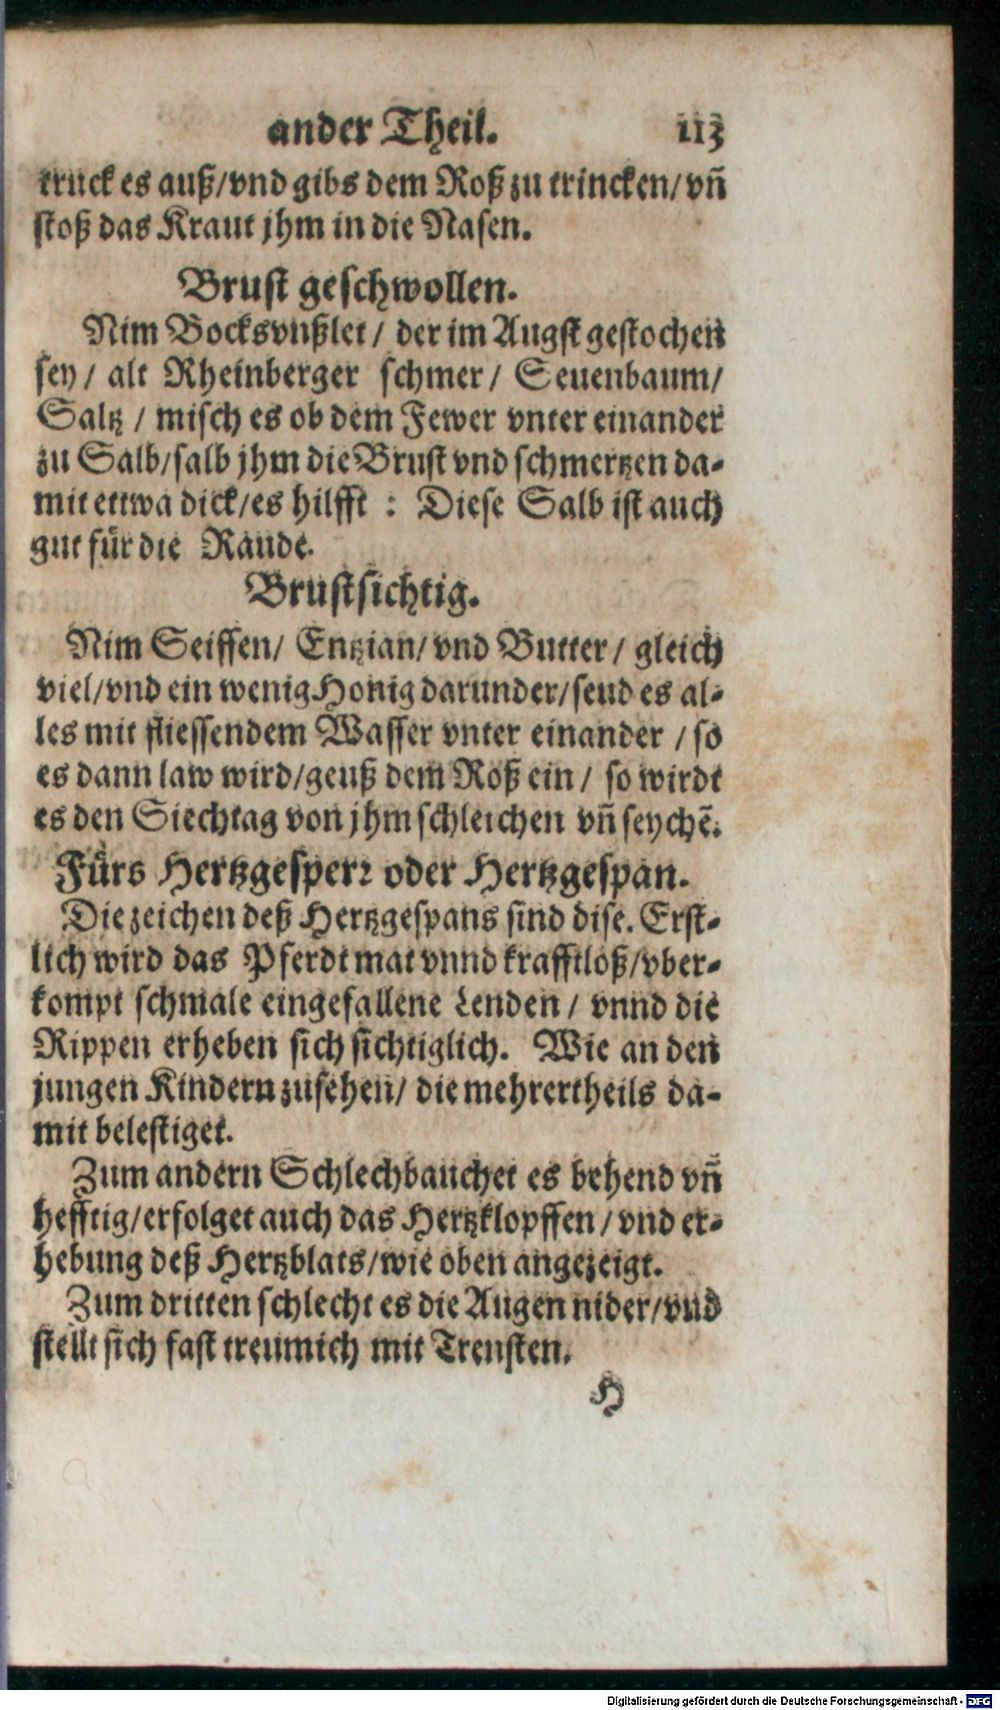 ander Theil. 113
truck es auß/vnd gibs dem Roß zu trincken/vñ
stoß das Kraut jhm in die Nasen.
Brust geschwollen.
Nim Bocksvnßlet/ der im Augst gestochen
sey/ alt Rheinberger schmer/ Seuenbaum/
Saltz / misch es ob dem Fewer vnter einander
zu Salb/salb jhm die Brust vnd schmertzen da-
mit ettwa dick/es hilfft : Diese Salb ist auch
gut für die Raude.
Brustsichtig.
Nim Seiffen/ Entzian/ vnd Butter/ gleich
viel/vnd ein wenig Honig darunder/seud es al-
les mit fliessendem Wasser vnter einander / so
es dann law wird/geuß dem Roß ein/ so wirdt
es den Siechtag von jhm schleichen vñ seychẽ.
Fürs Hertzgesperr oder Hertzgespan.
Die zeichen deß Hertzgespans sind dise. Erst-
lich wird das Pferdt mat vnnd krafftloß/vber-
kompt schmale eingefallene Lenden/ vnnd die
Rippen erheben sich sichtiglich. Wie an den
jungen Kindern zusehen/ die mehrertheils da-
mit belestiget.
Zum andern Schlechbauchet es behend vñ
hefftig/erfolget auch das Hertzklopffen/ vnd er-
hebung deß Hertzblats/wie oben angezeigt.
Zum dritten schlecht es die Augen nider/vnd
stellt sich fast treumich mit Treusten.
H
Digitalisierung gefördert durch die Deutsche Forschungsgemeinschaft - DFG